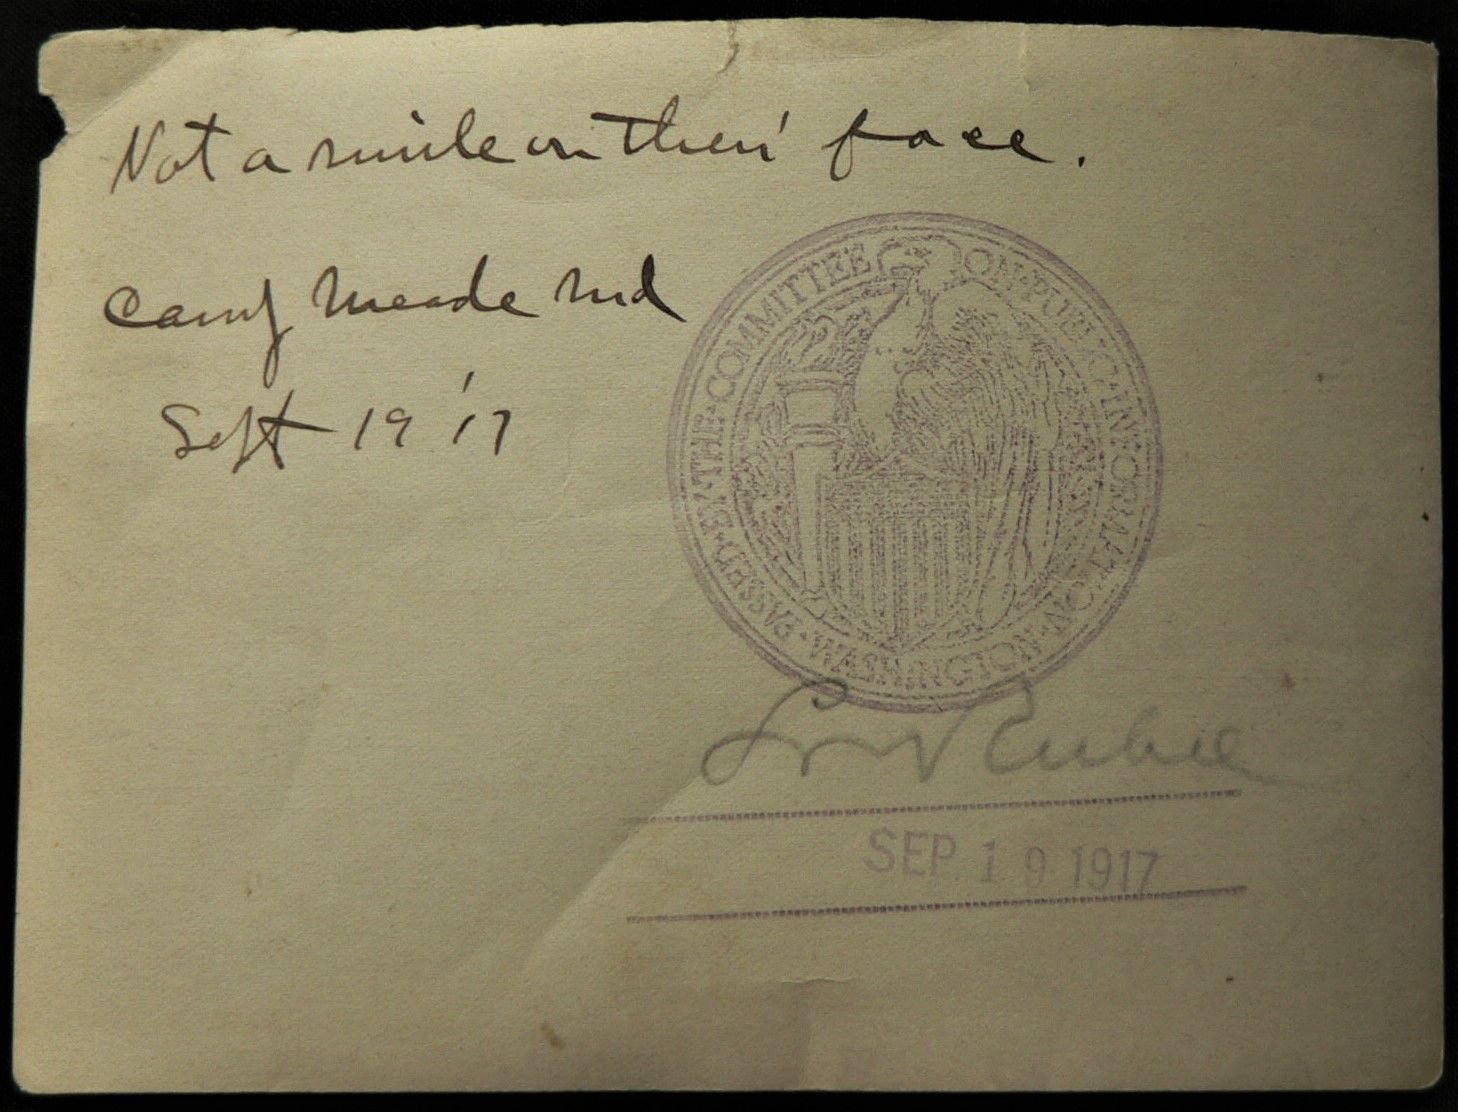 Not a smile on their face.
Camp Meade Md
Sept 19 '17
PASSED·BY·THE·COMMITTEE ON·PUBLIC·INFORMATION·WASHINGTON·
SEP. 19 1917